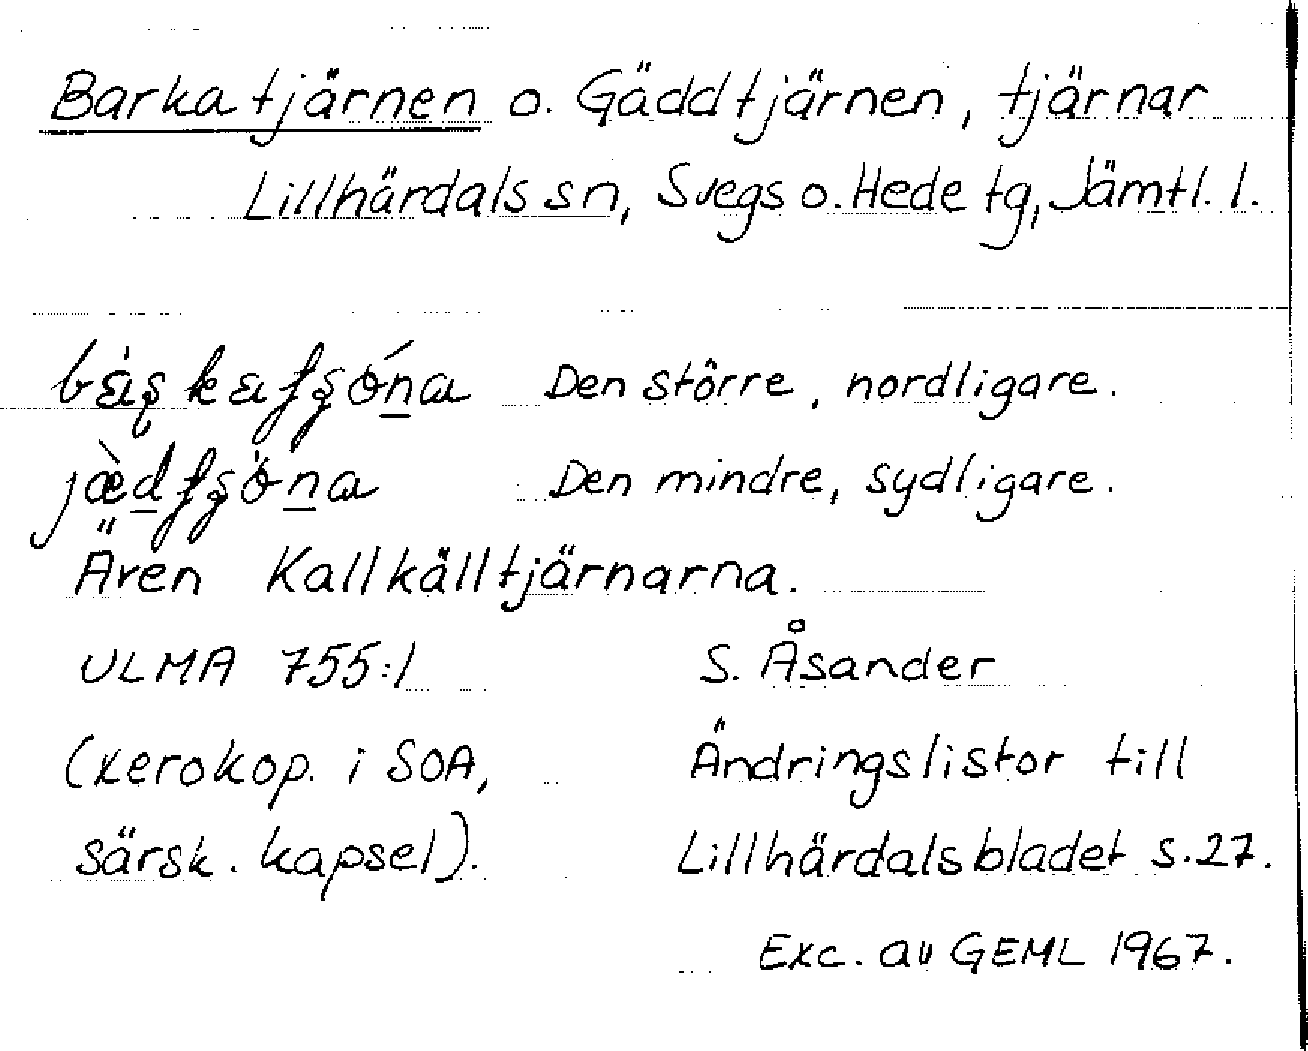 Barkatjärnen o. Gäddtjärnen, tjärnar
Lillhärdals sn, Svegs o. Hede tg, Jämtl. l.
Den större, nordligare.
Den mindre, sydligare.
Även Kallkälltjärnarna.
ULMA 755:1 S. Åsander
(xerokop. i SOA, Ändringslistor till
särsk. kapsel). Lillhärdalsbladet s. 27.
Exc. av GEML 1967.